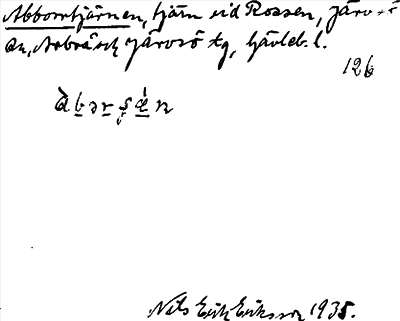 Abborrtjärnen, tjärn vid Rossen, Järvsö
sn, Arbrå och Järvsö tg, Gävleb. l.
126
Nils Erik Eriksson 1935.